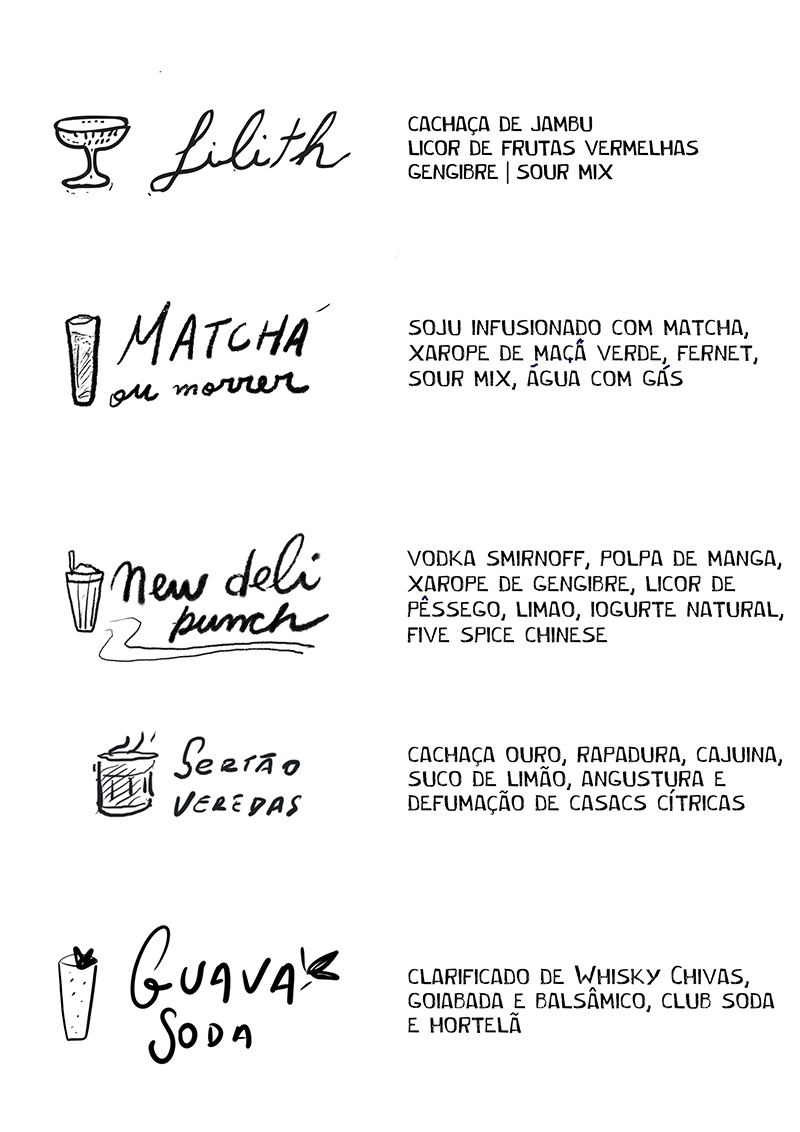 Lilith
CACHAÇA DE JAMBU
LICOR DE FRUTAS VERMELHAS
GENGIBRE | SOUR MIX
MATCHÁ
ou morrer
SOJU INFUSIONADO COM MATCHA,
XAROPE DE MAÇÂ VERDE, FERNET,
SOUR MIX, ÁGUA COM GÁS
new deli
punch
VODKA SMIRNOFF, POLPA DE MANGA,
XAROPE DE GENGIBRE, LICOR DE
PÊSSEGO, LIMAO, IOGURTE NATURAL,
FIVE SPICE CHINESE
SERTÃO
VEREDAS
CACHAÇA OURO, RAPADURA, CAJUINA,
SUCO DE LIMÃO, ANGUSTURA E
DEFUMAÇÃO DE CASACS CÍTRICAS
GUAVA
SODA
CLARIFICADO DE WHISKY CHIVAS,
GOIABADA E BALSÂMICO, CLUB SODA
E HORTELÃ